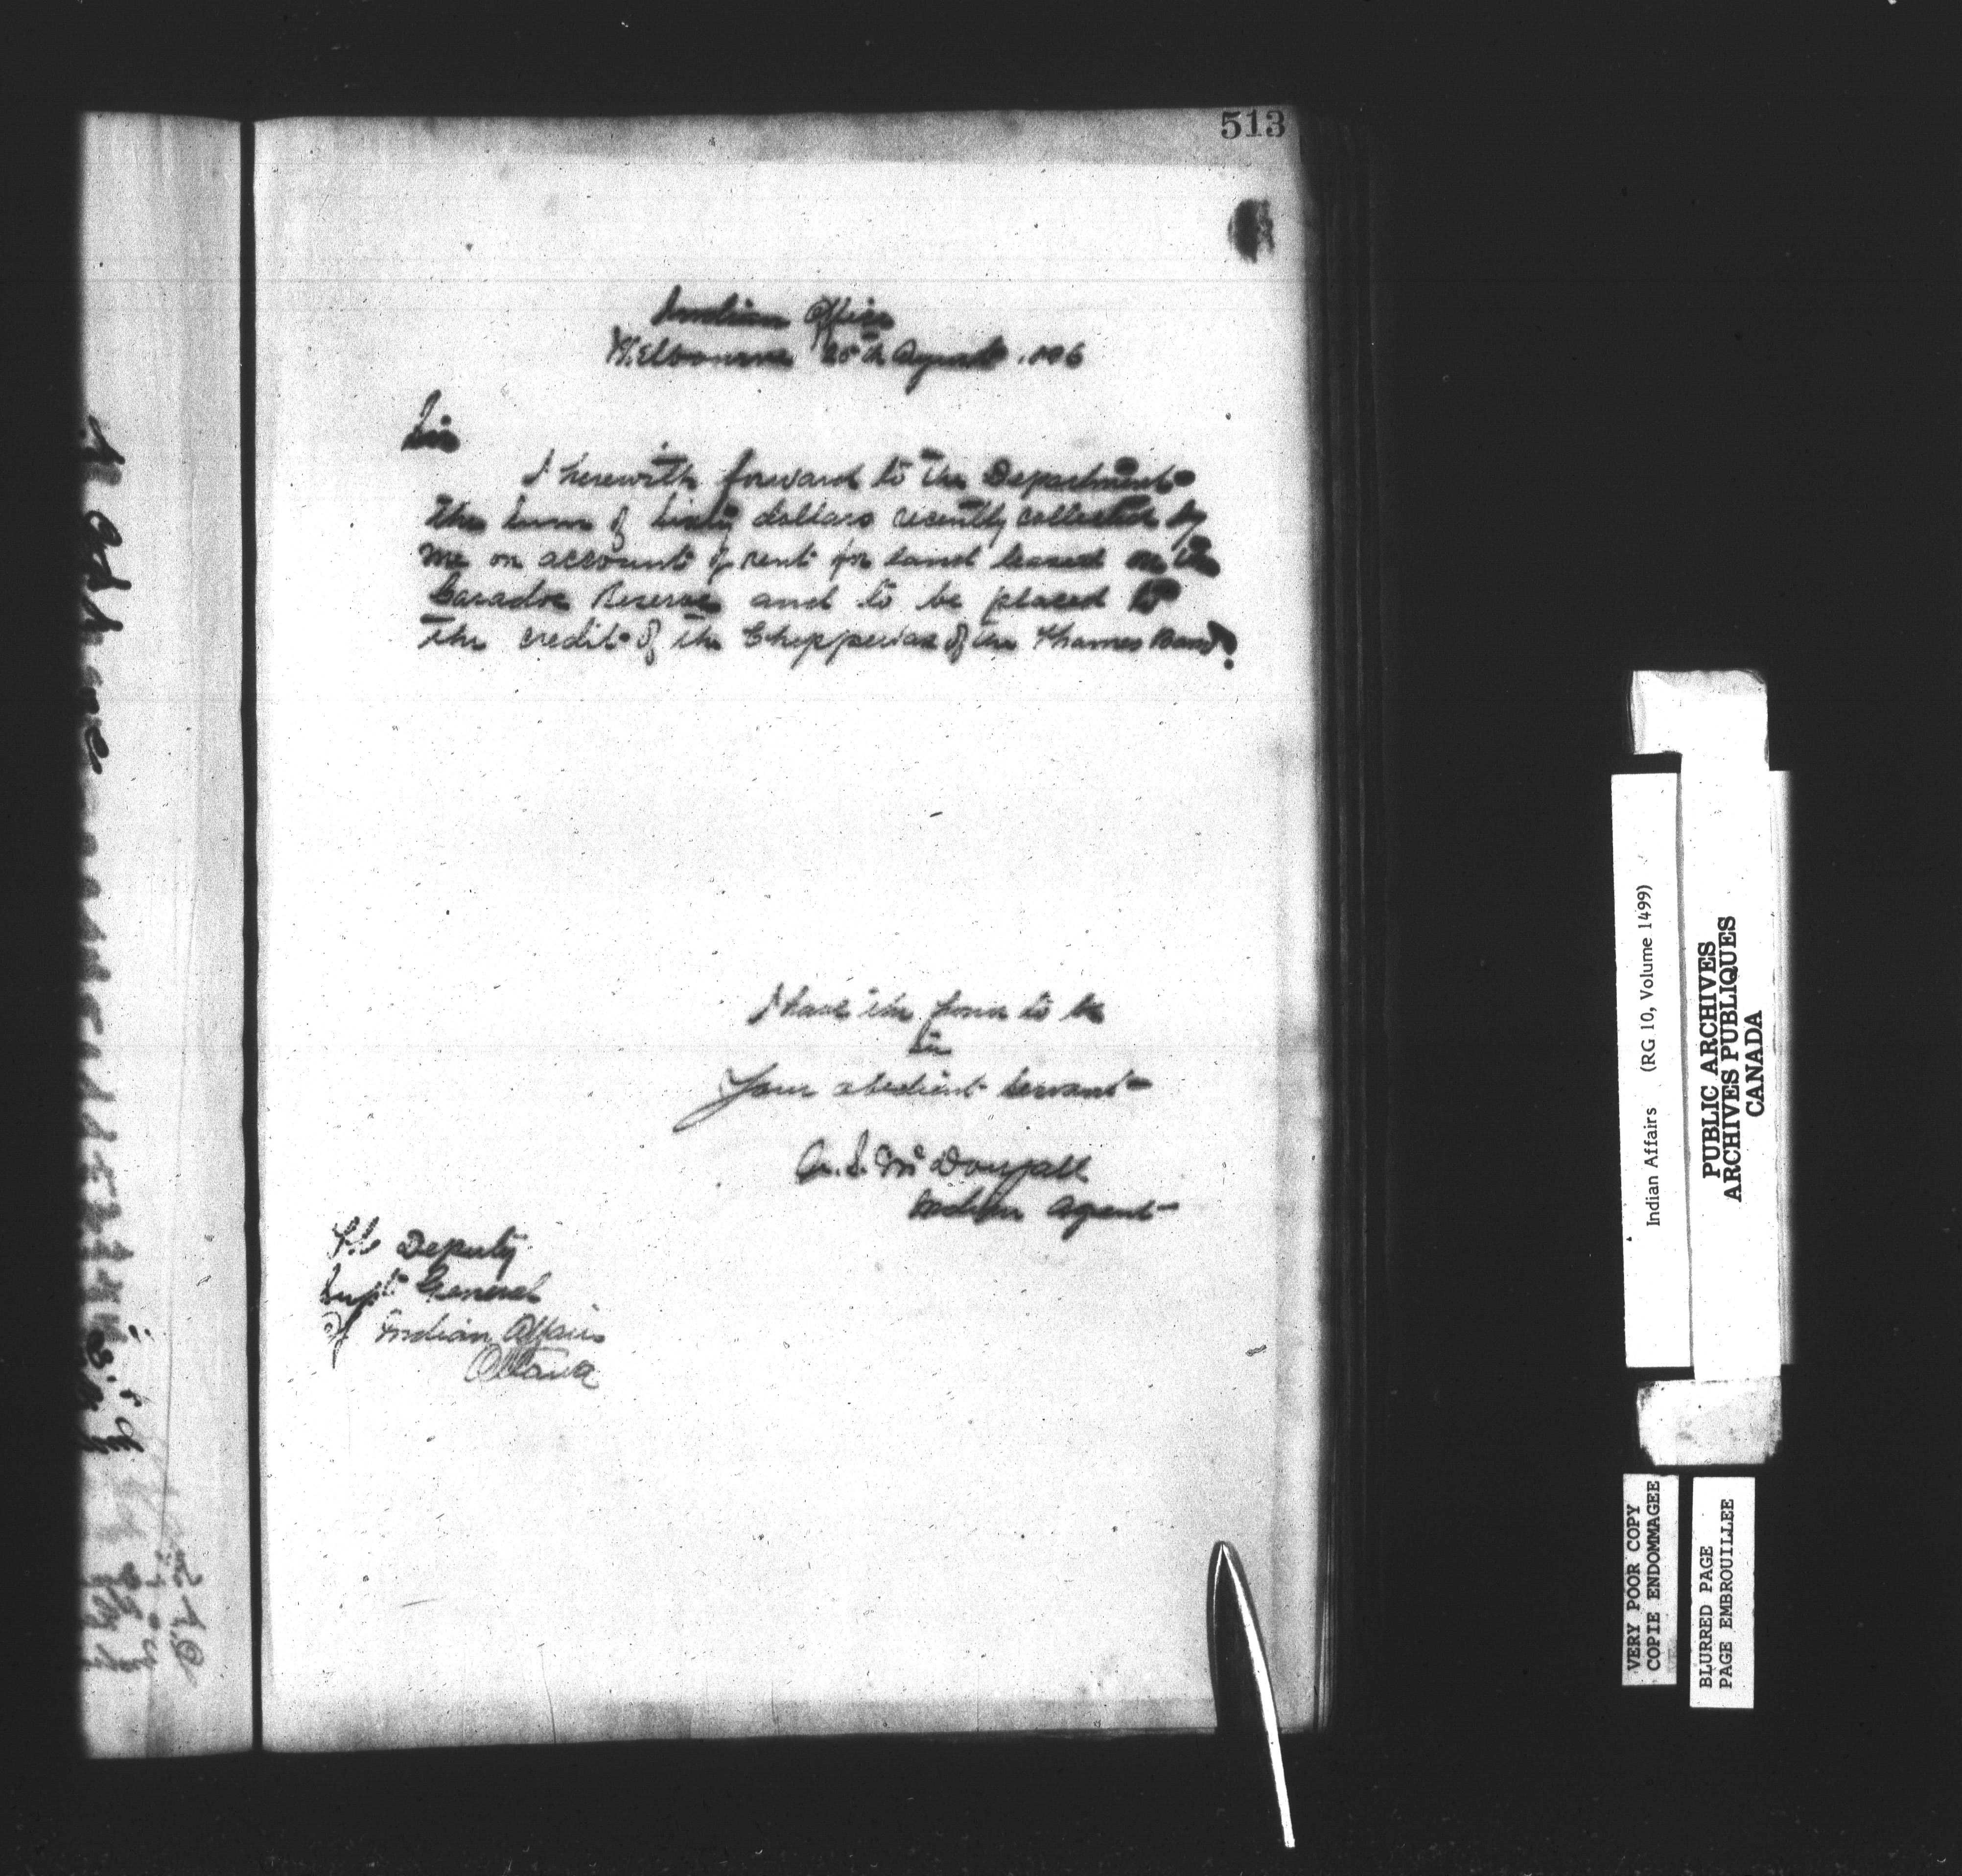 513
Indian Office
Melbourne 25th August 1896
Sir
I herewith forward to the Department
the sum of sixty dollars recently collected by
me on account of rent for land leased on the
Caradoc Reserve and to be placed to
the credit of the Chippewas of the Thames Band.
I have the honor to be
Sir
Your obedient servant
A. S. McDougall
Indian Agent
The Deputy
Supt General
of Indian Affairs
Ottawa
Indian Affairs (RG 10, Volume 1499)
PUBLIC ARCHIVES
ARCHIVES PUBLIQUES
CANADA
VERY POOR COPY
COPIE ENDOMMAGEE
BLURRED PAGE
PAGE EMBROUILLEE